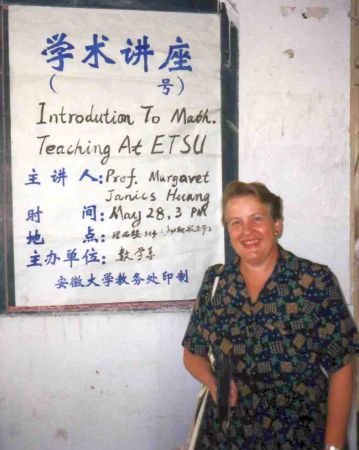 学术讲座
( 号)
Introdution To Math.
Teaching At ETSU
主讲人: Prof. Murgavet
Janics Huang
时 间: May 28, 3 PM
地 点:
主办单位: 数学系
安徽大学教务处印制